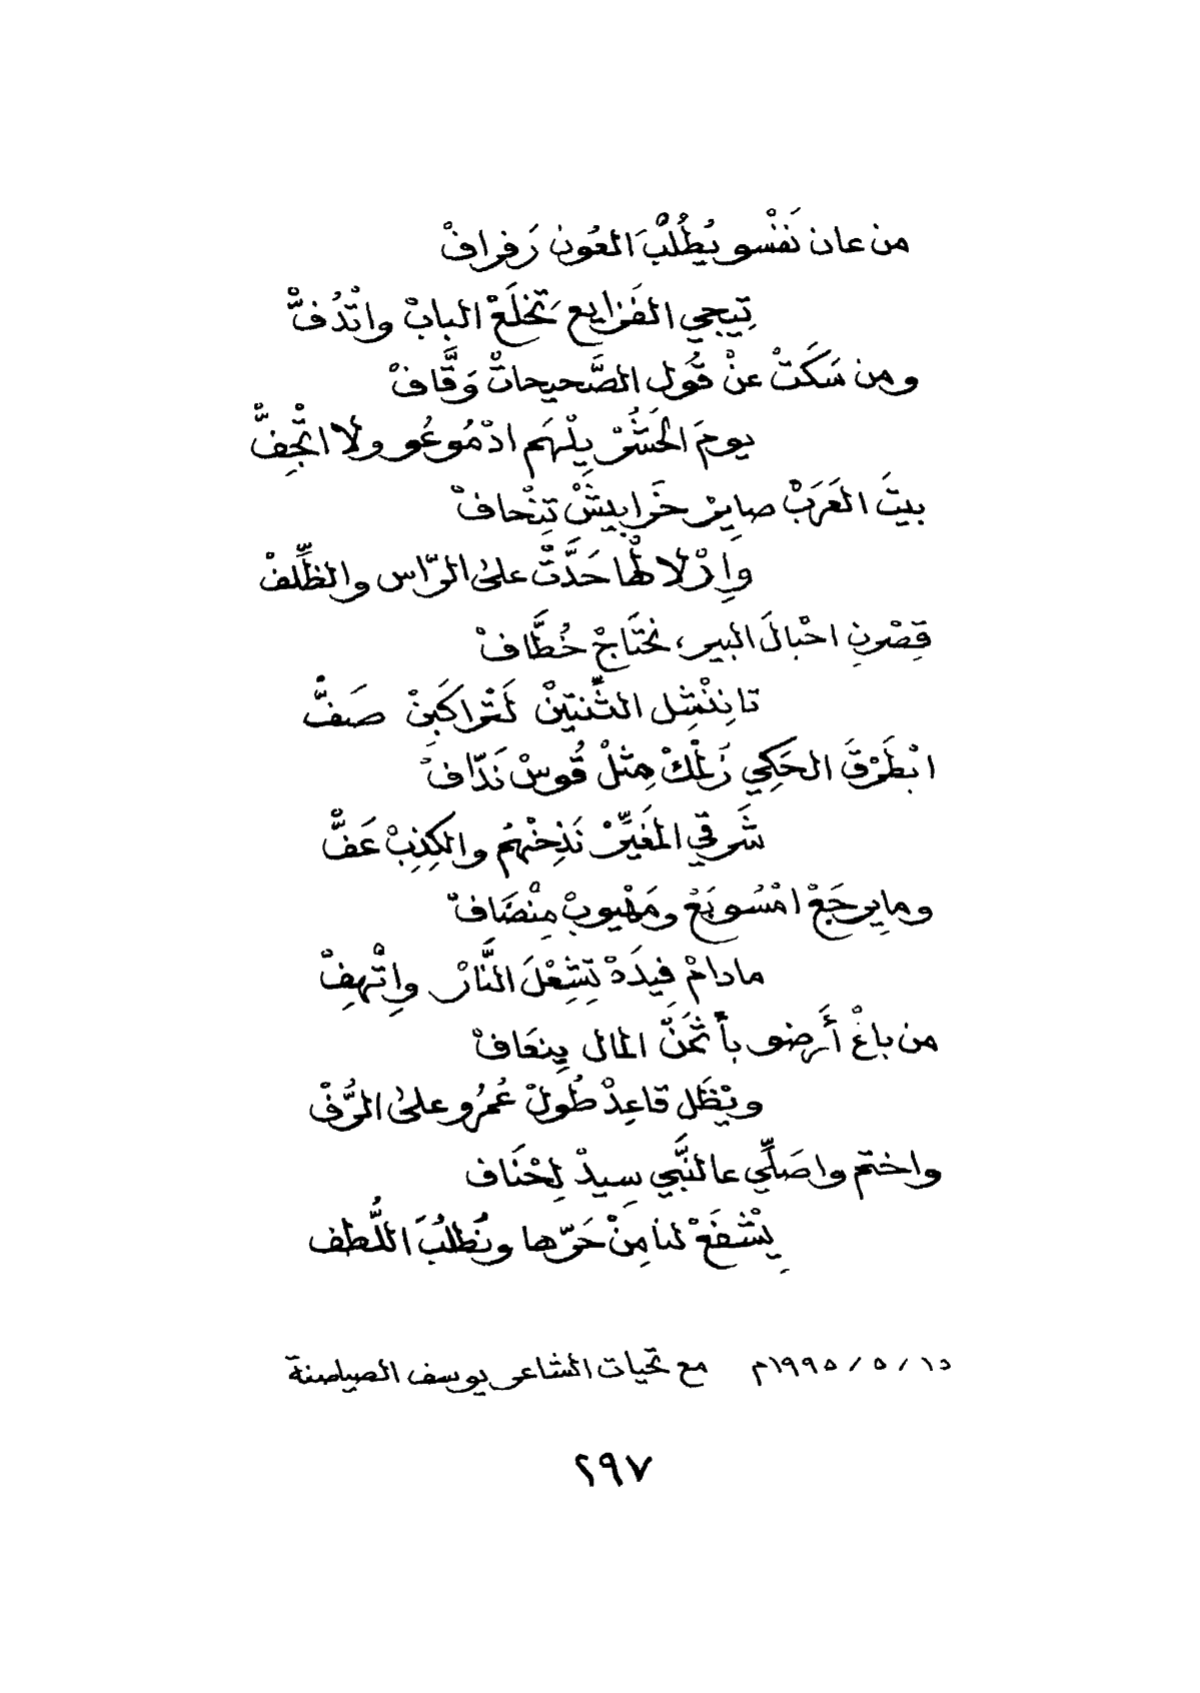 من عان نَفْسو يُطْلُبَ العُون رَفرافْ
تِيجي الفَزايع تَخلَعْ البابْ واتْدُفّْ
ومن سَكَتْ عنْ قُول الصَّحيحاتْ وَقَّافْ
يومَ الحَشْرْ يِلْهَم ادْمُوعُو ولا اتْجِفّْ
بيتَ العَرَبْ صايِرْ خَرابيشْ تِنْحافْ
وارْلا لْها حَدَّتْ على الرّاس والظِّلفْ
قِصْرنِ احْبالَ البير، نحْتَاجْ خُطَّافْ
تا نِنْشِل الثِّنتينْ لَتْراكَبِنْ صَفّْ
ابْطَرْقَ الحَكِي زَلْمَكْ مِثلْ قُوسْ نَدّافْ
شَرقي المغَيِّرْ نَذِخْهُم والكِذِبْ عَفّْ
وما يِرجَعْ امْسُوبَعْ ومَهْيوبْ مِنْصَافْ
مادامْ فيدَهْ تِشْعْلَ النَّارْ واتْهِفْ
من باعْ أَرضو بأَثمَنْ المال يِنعَافْ
ويْظَل قاعِدْ طُولْ عُمرُو على الرُّفْ
واختم واصَلِّي عالنَّبي سِيدْ لِحْنَاف
يِشْفَعْ لنا مِنْ حَرّها ونُطلُبَ اللُّطف
١٥/٥/١٩٩٥م مع تحيات الشاعر يوسف الصياصنة
٢٩٧